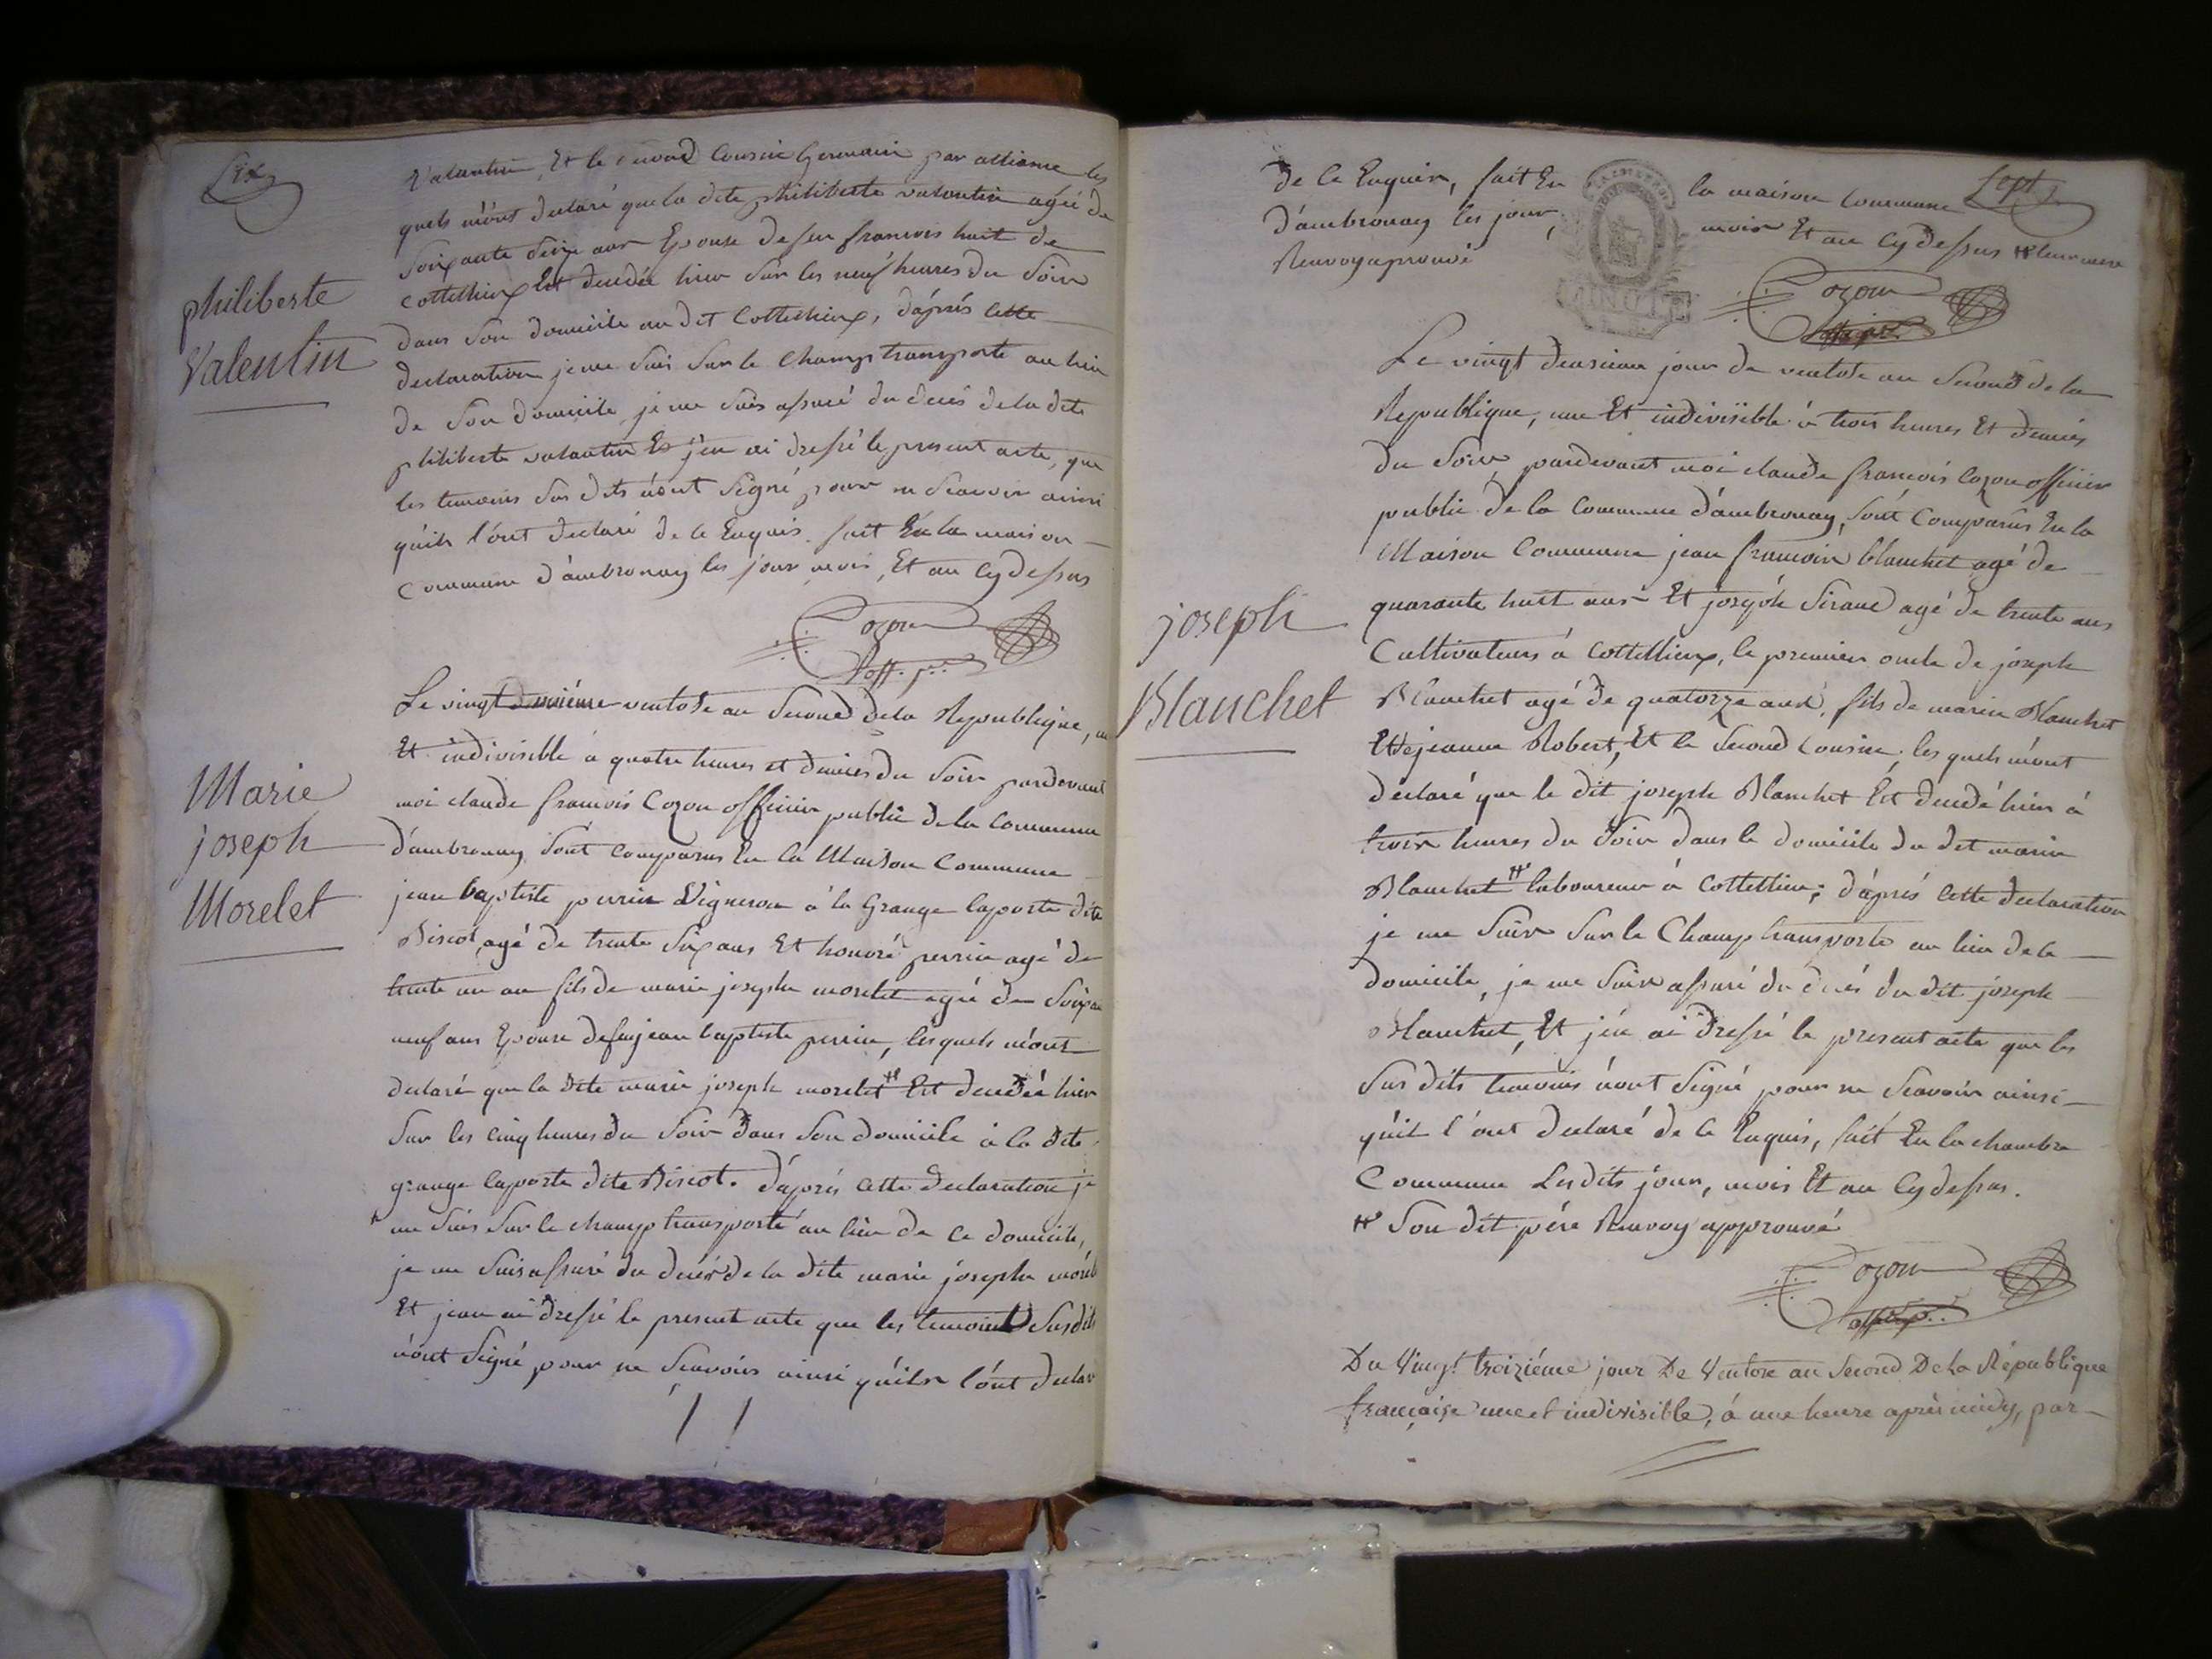 Six
Valantin, Et le second Cousin Germain par alliance les
quels m'ont declaré que la dite philiberte valantin agée de
Soixante Seize ans Epouse de feu francois huit de
Cottellieux Est decedée hier Sur les neuf heures du Soir
dans Son domicile au dit Cottellieux, d'aprés cette
declaration je me Suis Sur le Champ transporté au lieu
de Son domicile je me Suis assuré du decés de la dite
philiberte valantin Et j'en ai dressé le present acte, que
les temoins Sus dits n'ont Signé pour ne Scavoir ainsi
qu'ils l'ont declaré de ce Enquis. fait En la maison
Commune d'ambronay les jour mois, Et an Cy dessus
Cozon
off. p.
philiberte
Valentin
Le vingt deuxiéme ventose an Second de la Republique, une
Et indivisible a quatre heures et demies du Soir pardevant
moi claude francois Cozon officier public de la Commune
d'ambronay Sont Comparus En la Maison Commune
jean baptiste perrin Vigneron à la Grange laporte dite
Biscot, agé de trente Six ans Et honoré perrin agé de
trente un an fils de marie josephe morelet agée de Soixante
neuf ans Epouse de feu jean baptiste perrin, lesquels m'ont
declaré que la dite marie joseph morelet # Est decedée hier
Sur les cinq heures du Soir dans Son domicile à la dite
grange laporte dite Biscot. d'aprés cette declaration je
me Suis Sur le champ transporté au lieu de ce domicile,
je me Suis assuré du decés de la dite marie josephe morelet
Et jean ai dressé le present acte que les temoins Susdits
n'ont Signé pour ne Scavoir ainsi qu'ils l'ont declaré
Marie
joseph
Morelet
Sept
de ce Enquis, fait En la maison Commune
d'ambronay les jour, mois Et an Cy dessus # leur mere
Renvoy aprouvé
Cozon
off. p.
Le vingt deuxieme jour de ventose an Second de la
Republique, une Et indivisible à trois heures Et demies
du Soir pardevant moi claude francois Cozon officier
public de la Commune d'ambronay, Sont Comparus En la
Maison Commune jean francois blanchet agé de
quarante huit ans Et joseph Siraud agé de trente ans
Cultivateurs à Cottellieux, le premier oncle de joseph
Blanchet agé de quatorze ans, fils de marin Blanchet
Et de jeanne Robert, Et le Second Cousin, les quels m'ont
declaré que le dit joseph Blanchet Est decedé hier à
trois heures du Soir dans le domicile du dit marin
Blanchet # laboureur à Cottellieu; d'aprés cette declaration
je me Suis Sur le Champ transporté au lieu de ce
domicile, je me Suis assuré du decés du dit joseph
Blanchet, Et j'en ai dressé le present acte que les
Sus dits temoins n'ont Signé pour ne Scavoir ainsi
qu'il l'ont declaré de ce Enquis, fait En la chambre
Commune Les dits jour, mois Et an Cy dessus.
# Son dit pére Renvoy approuvé
Cozon
off. p.
joseph
Blanchet
Du Vingt troiziéme jour De Ventose an Second De la République
françaize une et indivisible, à une heure après midy, par-